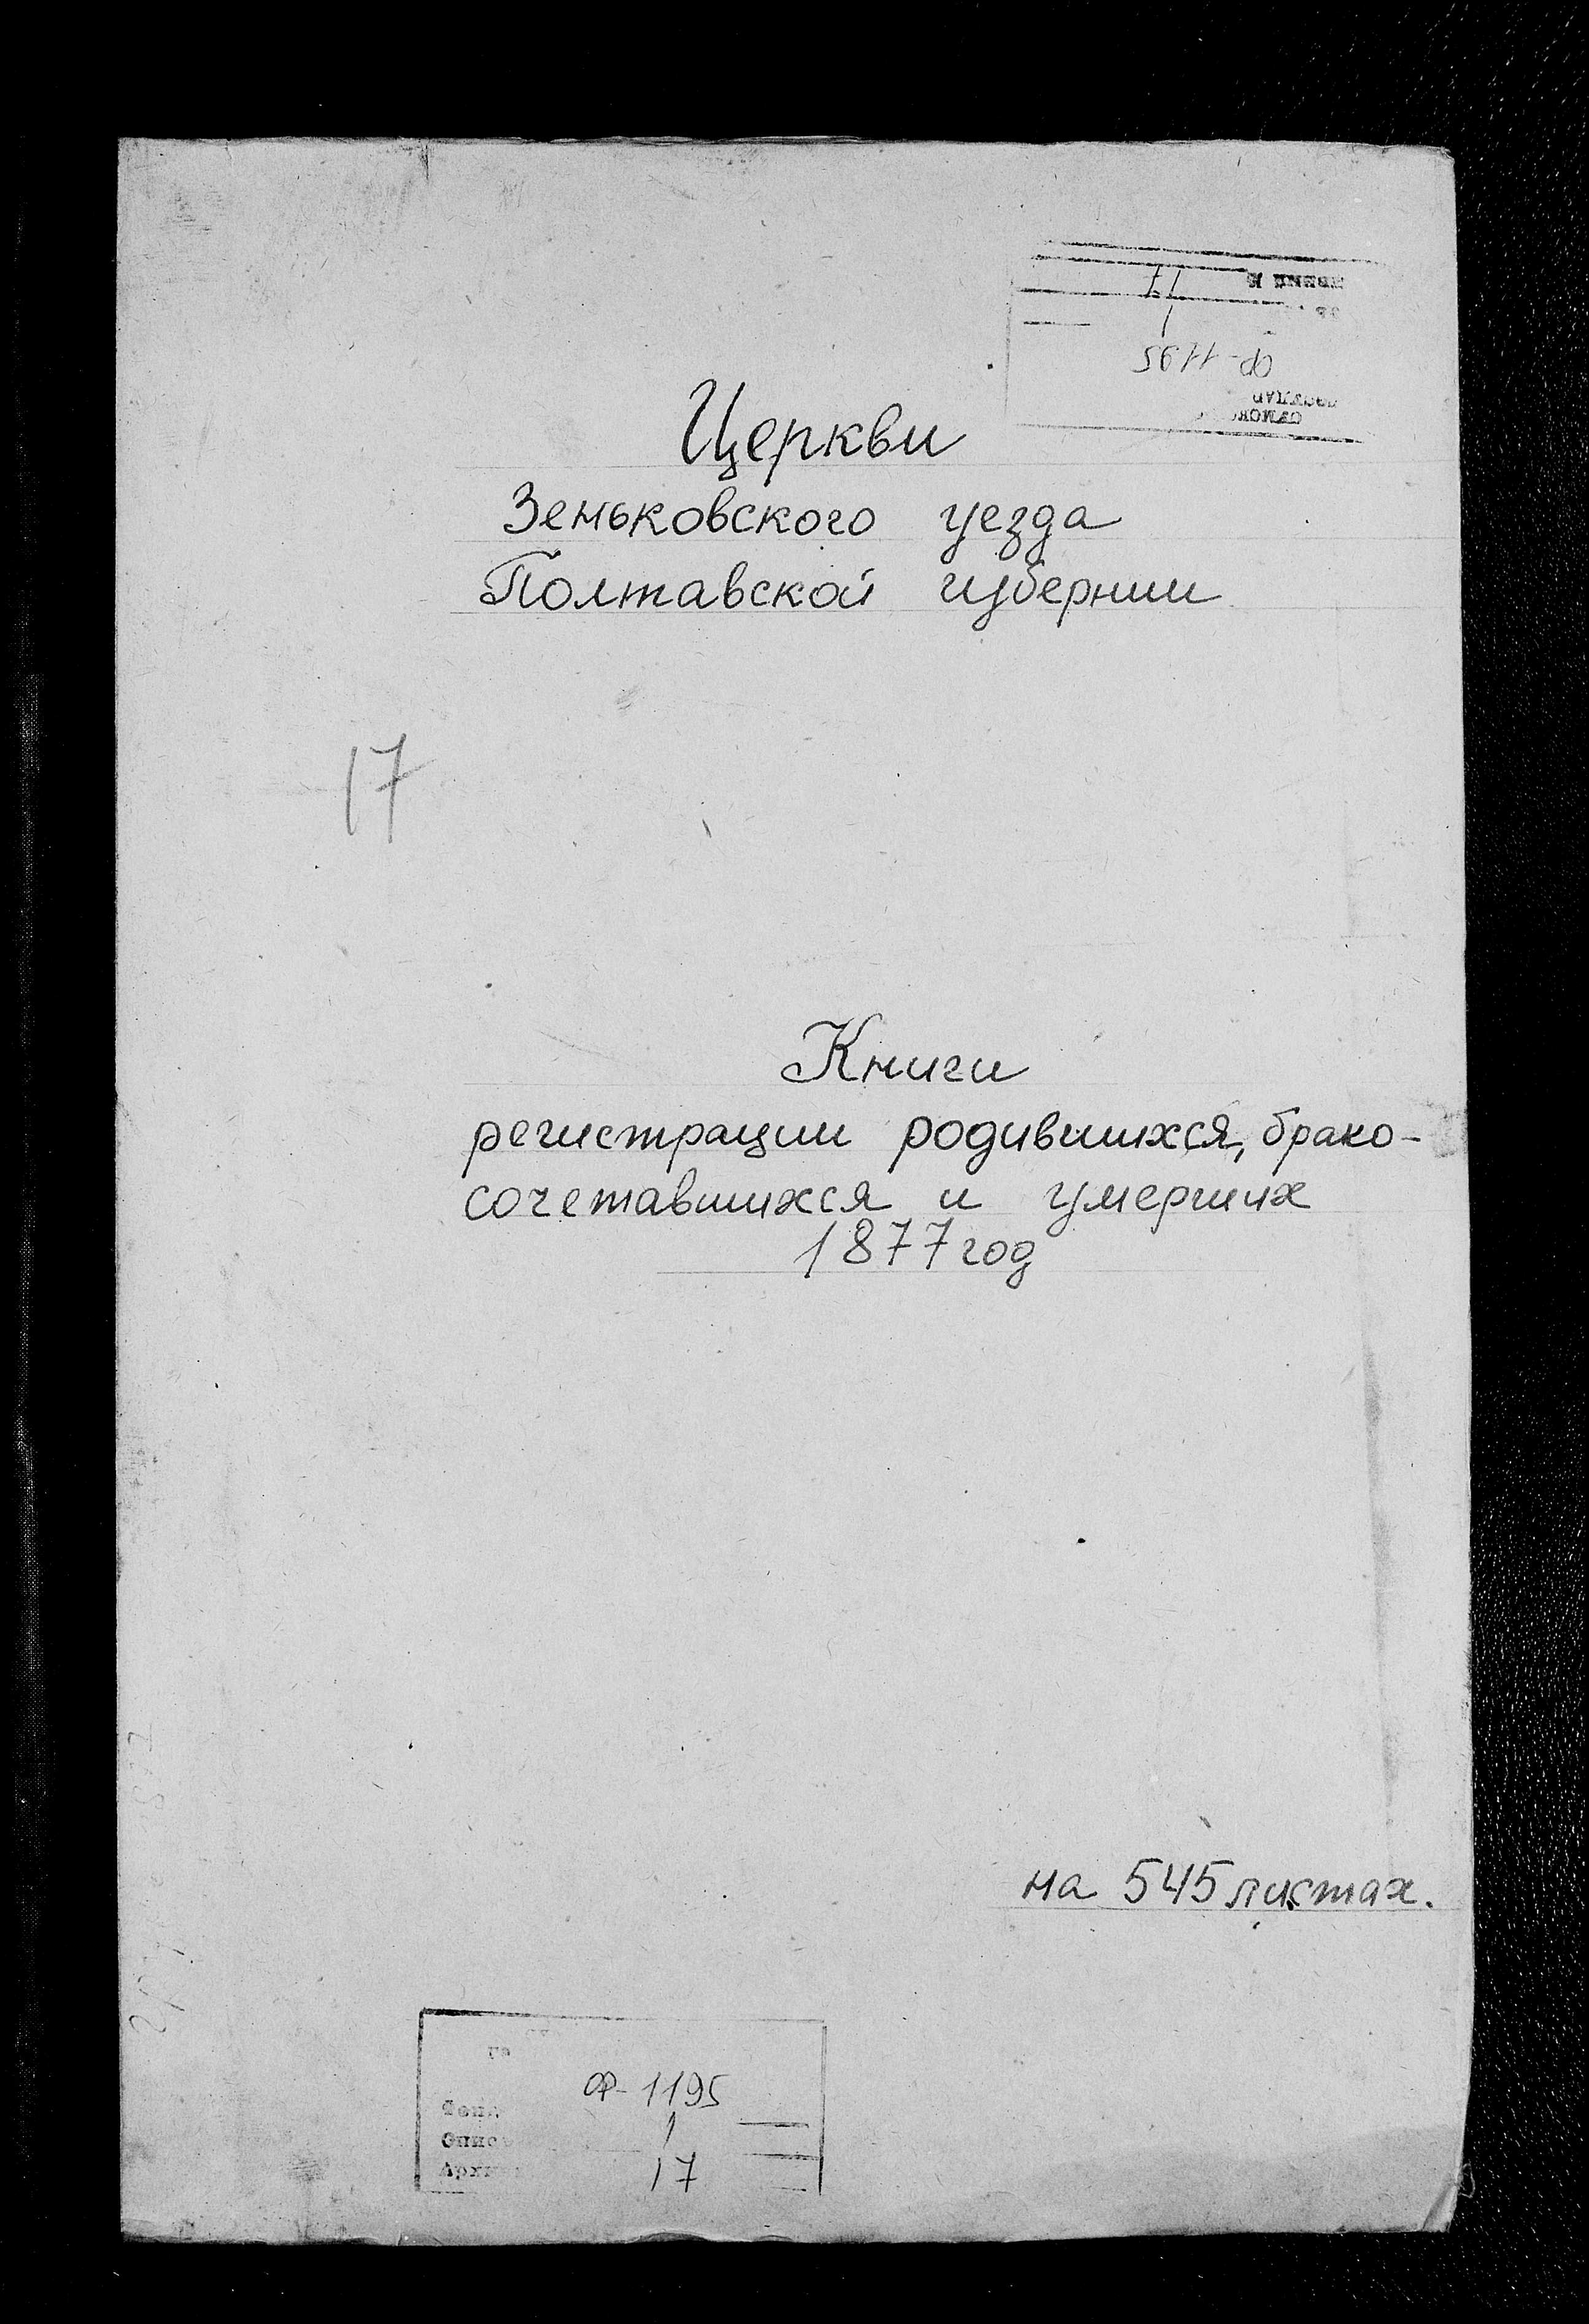 Ф-1195
1
17
Церкви
Зеньковского уезда
Полтавской губернии
17
Книги
регистрации родившихся, брако-
сочетавшихся и умерших
1877 год
на 545 листах.
Ф-1195
1
17